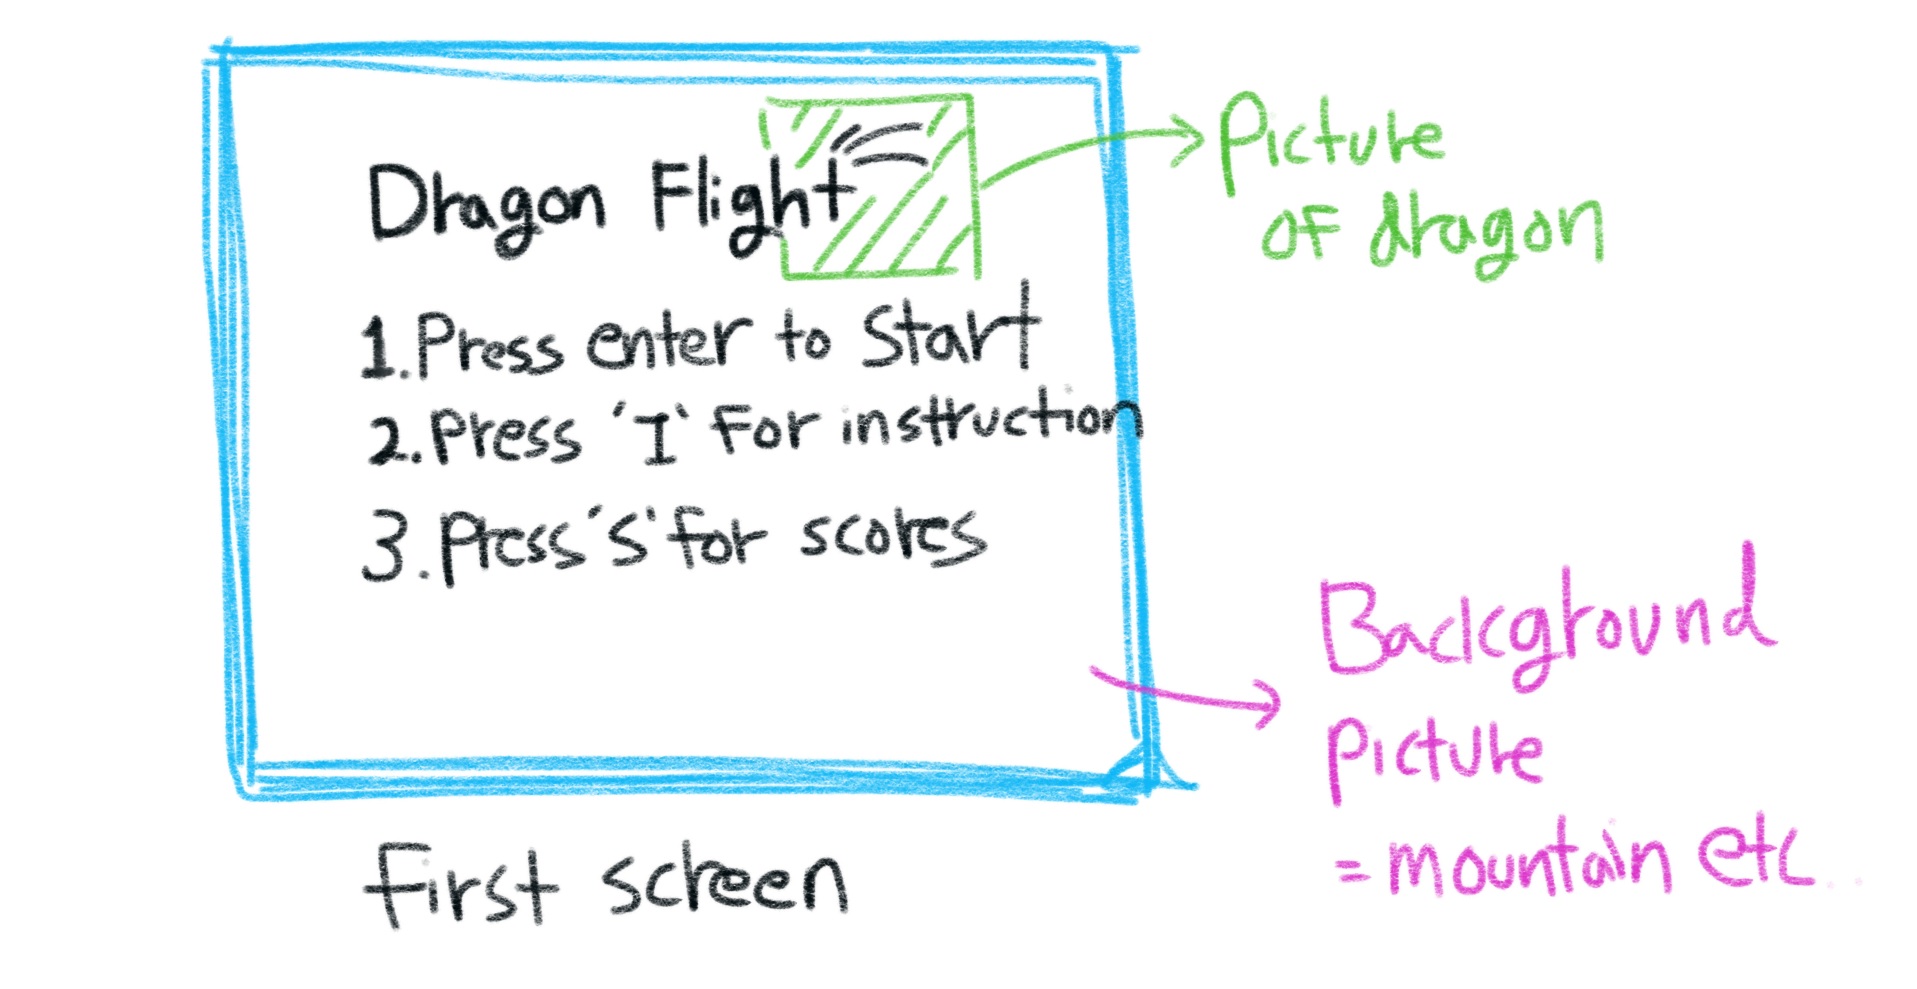 Dragon Flight
1. Press enter to Start
2. Press 'I' For instruction
3. Press 'S' for scores
First screen
Picture
of dragon
Background
Picture
= mountain etc